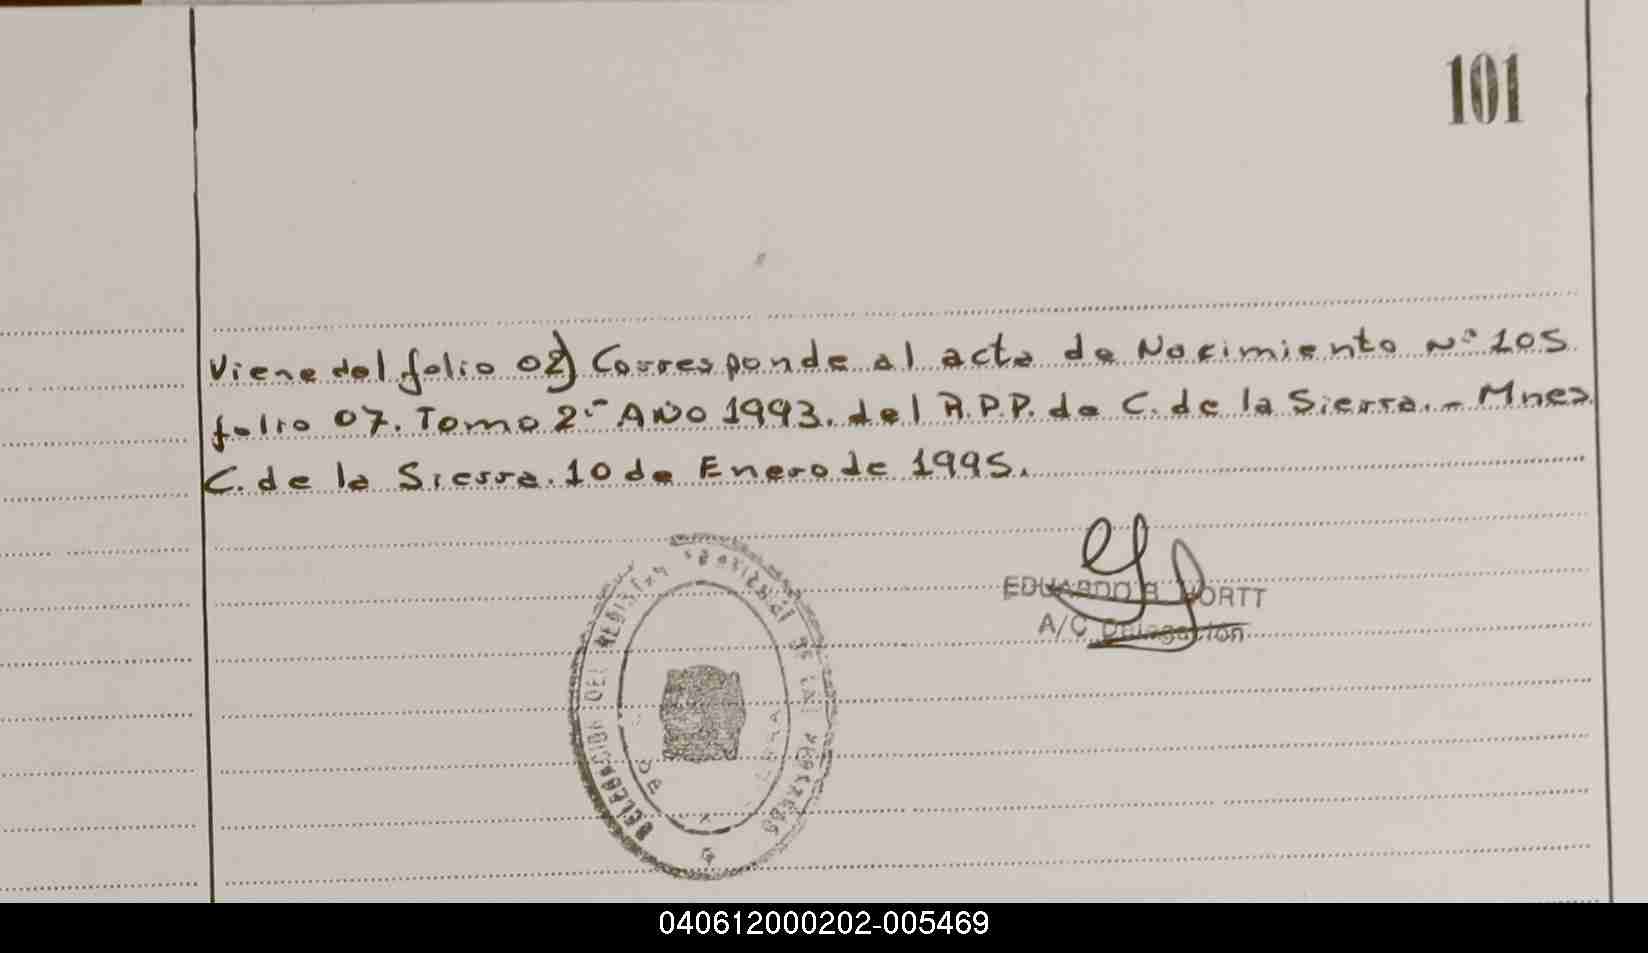 101
Viene del folio 02) Corresponde al acta de Nacimiento N° 105
folio 07. Tomo 2° AÑO 1993. del R.P.P. de C. de la Sierra.- Mnes
C. de la Sierra. 10 de Enero de 1995.
EDUARDO R. WORTT
A/C Delegación
DELEGACION DEL REGISTRO PROVINCIAL DE LAS PERSONAS
040612000202-005469